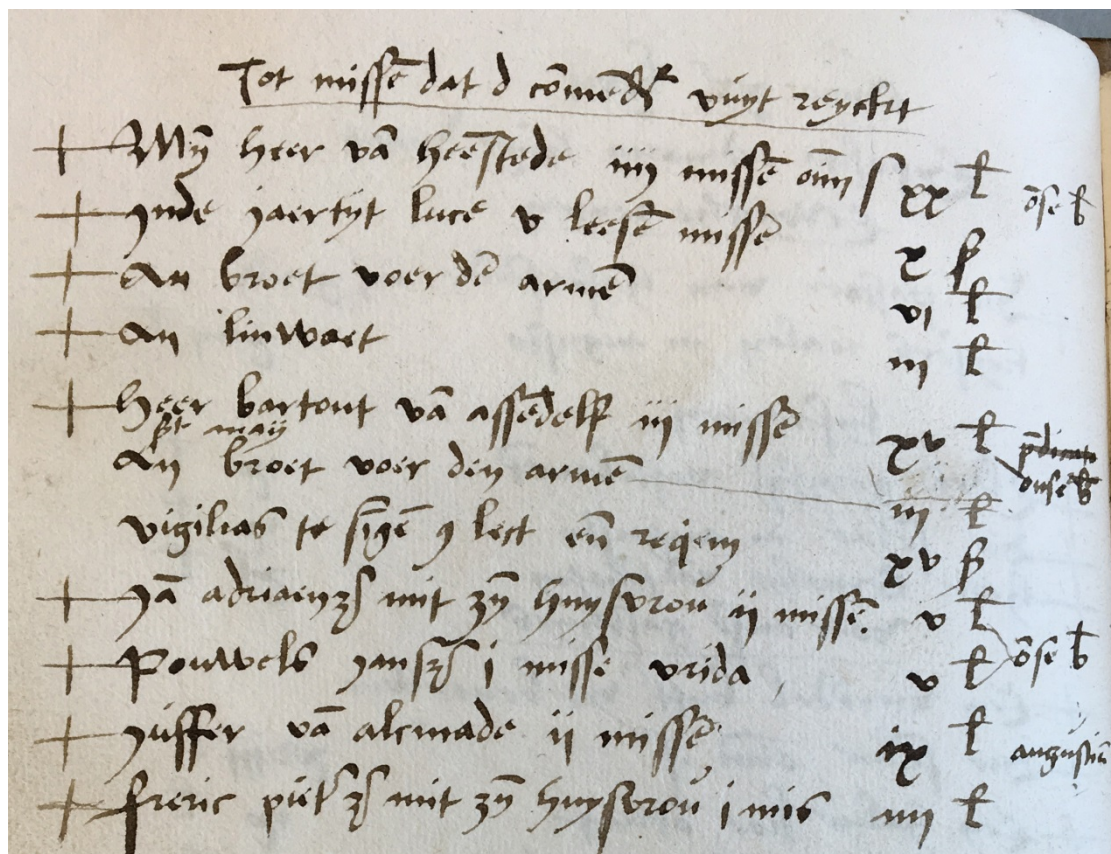 Tot missē dat d cōmēdr vuyt reyckt
Mȳ heer vā heēstede iiij missē om s xx ł ōse b
Inde jaertyt luce v leesē missē x ß
An broet voer dē armē vi ł
An linwaet iij ł
heer bartout vā assēdelf iij missē xv ł
An broet voer den armē iij ł onse b
vigilias te sīgē 9 lect eñ reqiem xv ß
Jā adriaenzs mit zȳ huysvrou ij missē v ł
Pouwels Jansz i misse vrida v ł ōse b
Juffer vā alcmade ij missē ix ł augustin
freric piet zs mit zȳ huysvrou i mis iiij ł